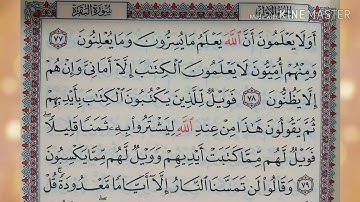 سورة البقرة
KINEMASTER
أَوَلَا يَعْلَمُونَ أَنَّ اللَّهَ يَعْلَمُ مَا يُسِرُّونَ وَمَا يُعْلِنُونَ ٧٧
وَمِنْهُمْ أُمِّيُّونَ لَا يَعْلَمُونَ الْكِتَابَ إِلَّا أَمَانِيَّ وَإِنْ هُمْ
إِلَّا يَظُنُّونَ ٧٨ فَوَيْلٌ لِّلَّذِينَ يَكْتُبُونَ الْكِتَابَ بِأَيْدِيهِمْ
ثُمَّ يَقُولُونَ هَٰذَا مِنْ عِندِ اللَّهِ لِيَشْتَرُوا بِهِ ثَمَنًا قَلِيلًا ۖ
فَوَيْلٌ لَّهُم مِّمَّا كَتَبَتْ أَيْدِيهِمْ وَوَيْلٌ لَّهُم مِّمَّا يَكْسِبُونَ ٧٩
وَقَالُوا لَن تَمَسَّنَا النَّارُ إِلَّا أَيَّامًا مَّعْدُودَةً ۚ قُلْ